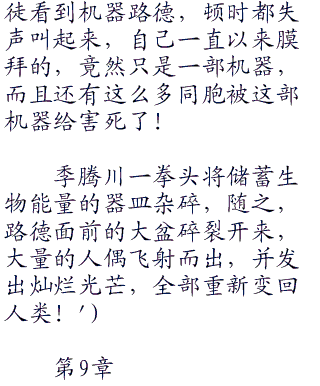 徒看到机器路德，顿时都失
声叫起来，自己一直以来膜
拜的，竟然只是一部机器，
而且还有这么多同胞被这部
机器给害死了！
季腾川一拳头将储蓄生
物能量的器皿杂碎，随之，
路德面前的大盆碎裂开来，
大量的人偶飞射而出，并发
出灿烂光芒，全部重新变回
人类！′)
第9章